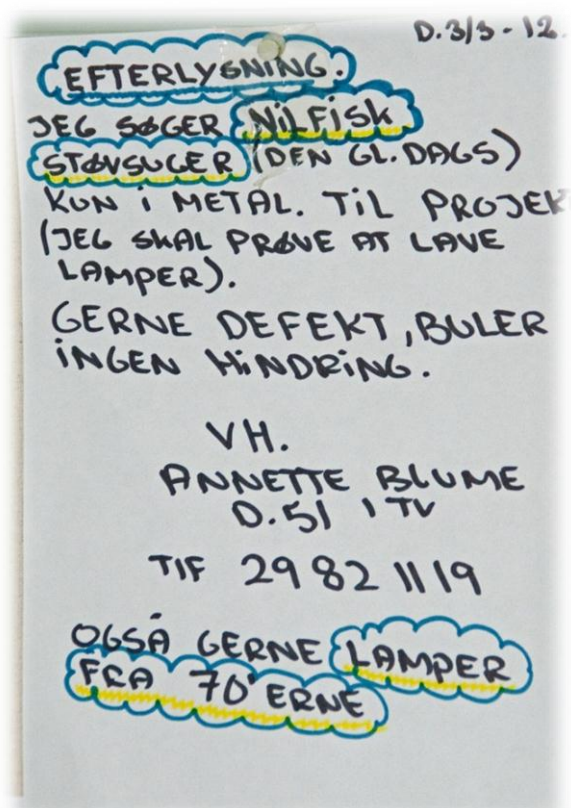 D. 3/3-12.
EFTERLYSNING.
JEG SØGER NILFISK
STØVSUGER (DEN GL. DAGS)
KUN I METAL. TIL PROJEK
(JEG SKAL PRØVE AT LAVE
LAMPER).
GERNE DEFEKT, BULER
INGEN HINDRING.
VH.
ANNETTE BLUME
D. 51 1 TV
Tlf 29 82 11 19
OGSÅ GERNE LAMPER
FRA 70'ERNE